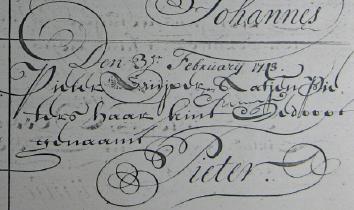 Johannes
Den 3de February 1713.
Pieter Cuyper & Katjen Pie
ters haar kint Gedoopt
genaamt
Pieter.